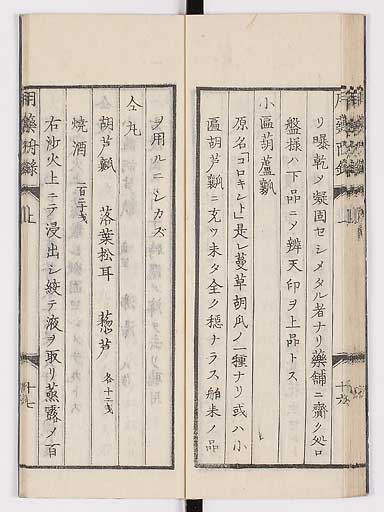 リ曝乾メ凝固セシメタル者ナリ藥舖ニ齎ク処ロ
盤様ハ下品ニメ辨天印ヲ上品トス
小匾葫蘆瓤
原名「コロキント」是レ蔓草胡瓜ノ一種ナリ或ハ小
匾胡芦瓤ニ充ツ未タ全ク穏ナラス舶来ノ品
ヲ用ルニシカズ
仝丸
胡芦瓤 落葉松耳 葱芦 各十二戔
焼酒 一百二十戔
右沙火上ニテ浸出シ絞テ液ヲ取リ蒸露メ百
用藥 上 十六
用藥 上 十七